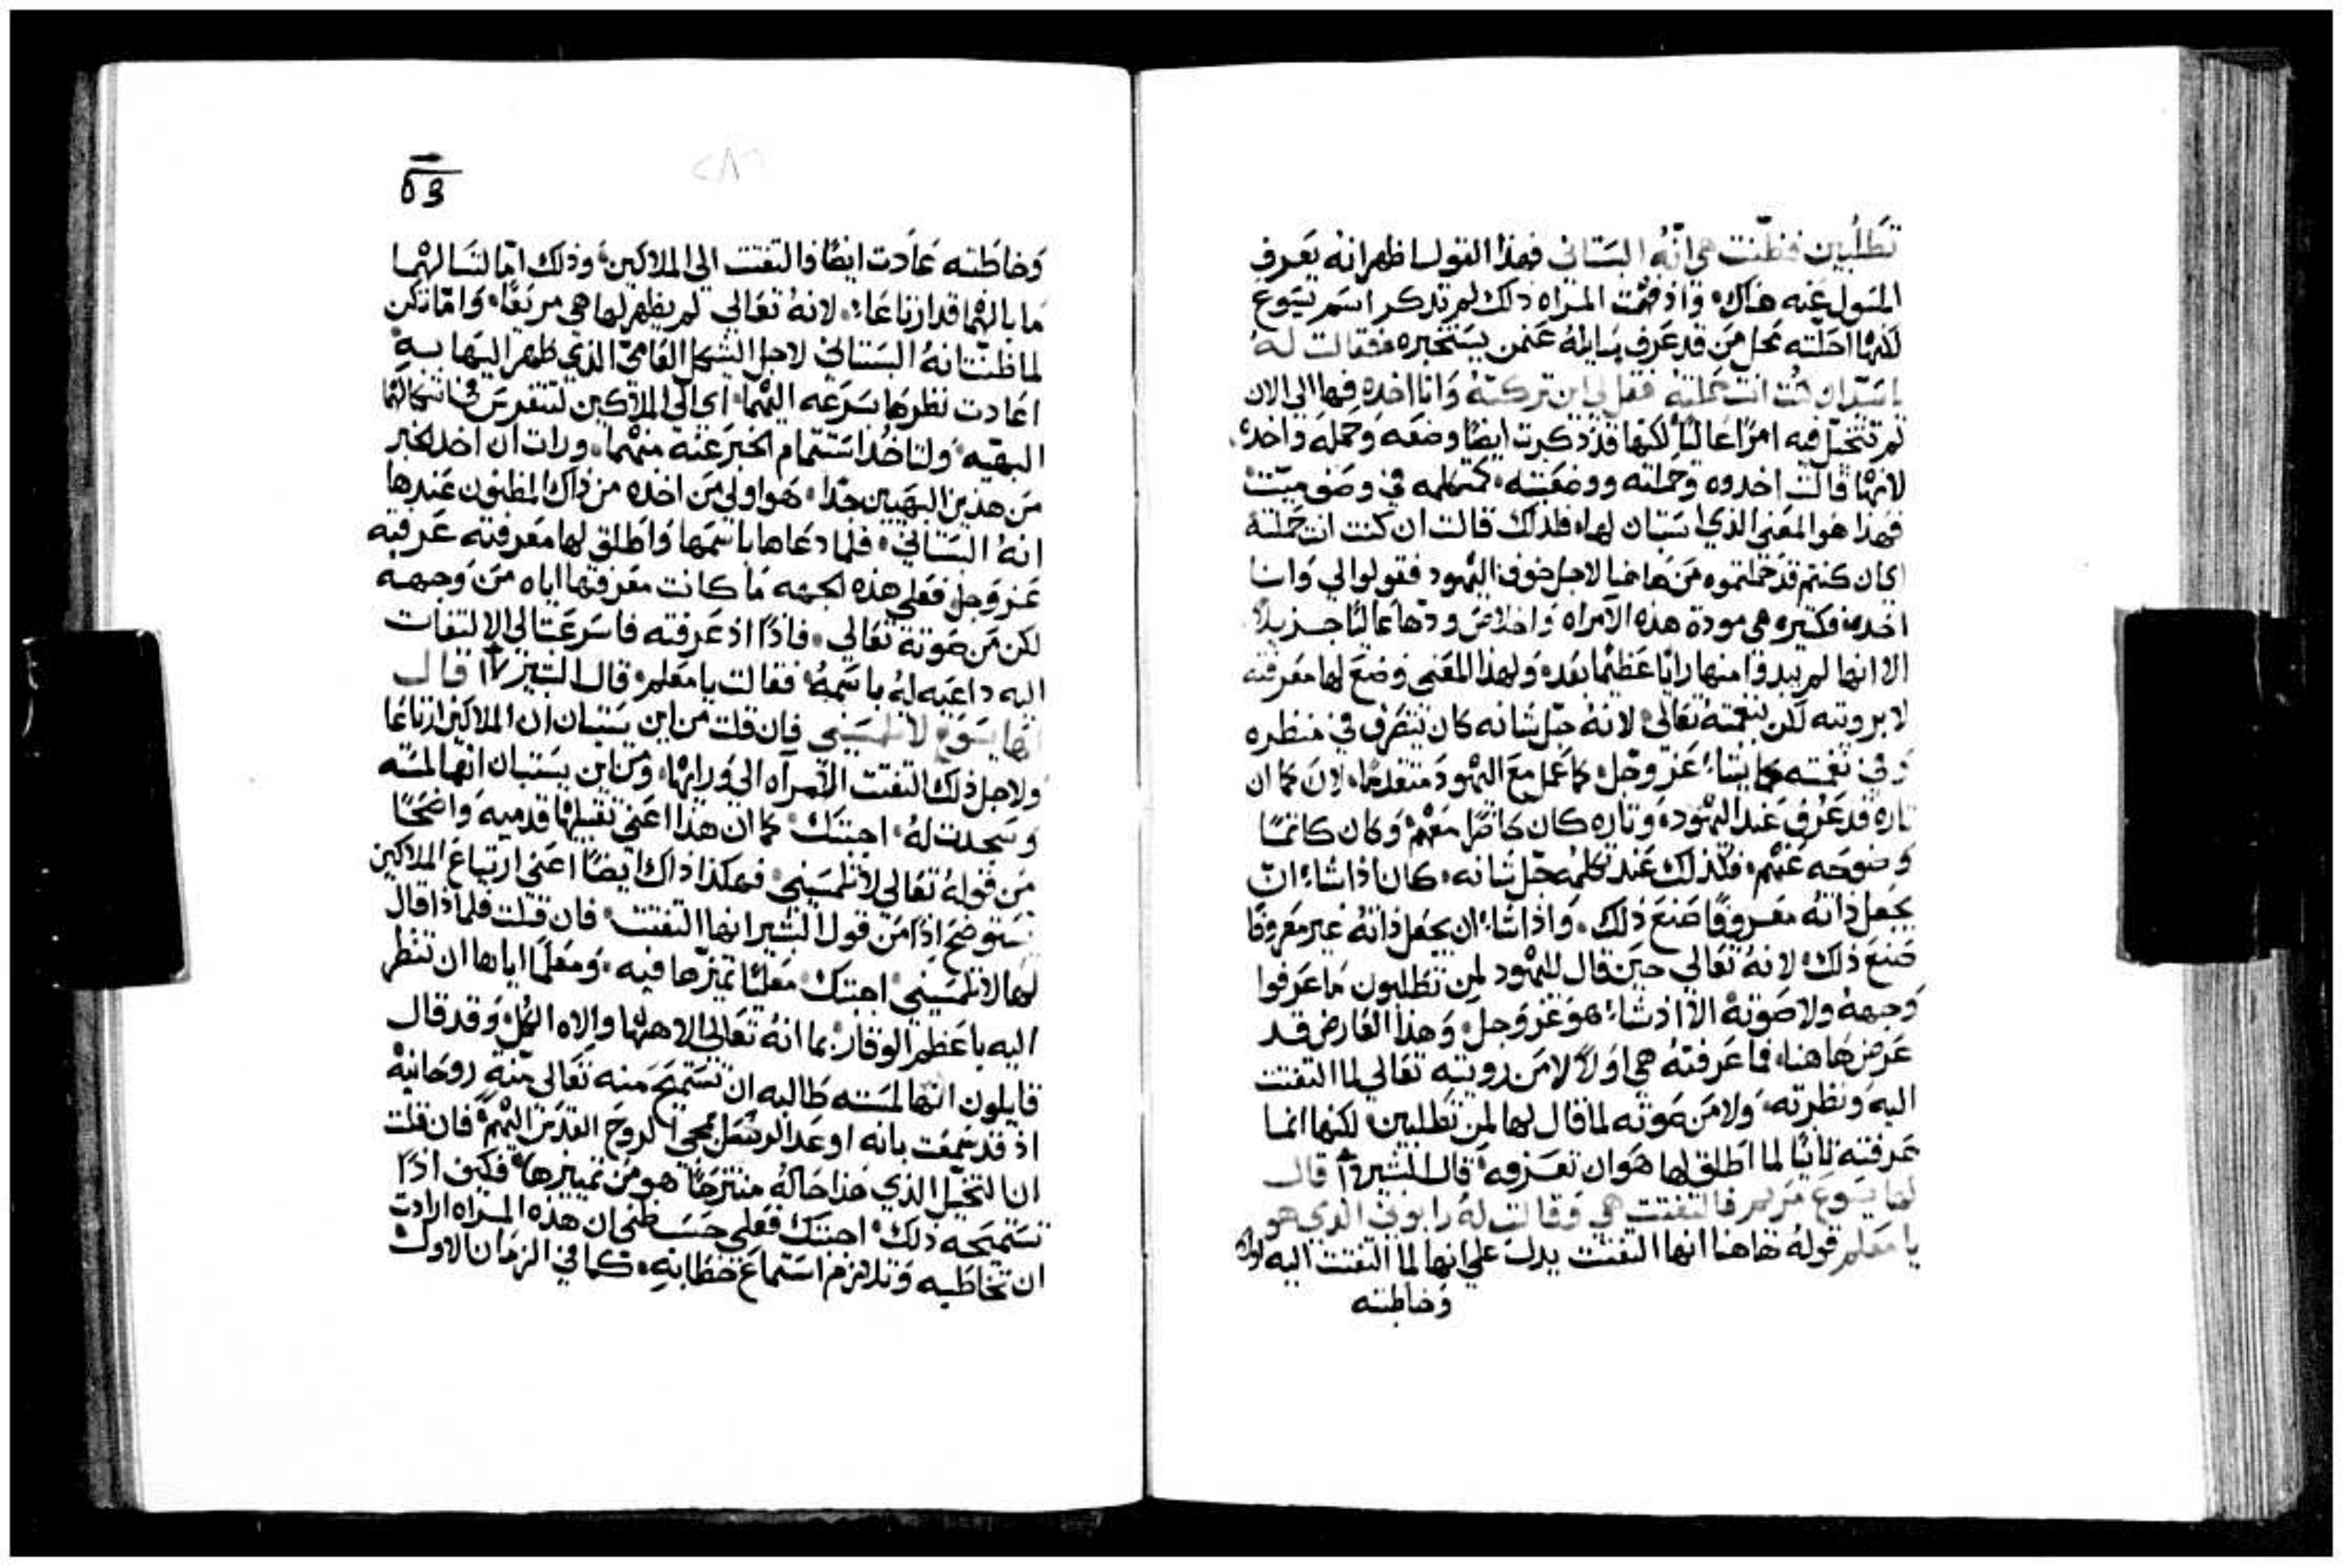 تَطلُبين فظنّنت هي انّهُ البسَتاني فهذا القول اظهر انه يَعرف
المسَول عَنه هناك، وَاذ فهمَت المراه ذلك لم تدكر اسَم يَسَوع
لكنهّا احَلته محَل مَن قد عَرف مسَايلهُ عَنمن يسَتخبره، فقالت لهُ
يا سَيّد ان كنت انت حَملتهُ فقل لي اين تركتهُ وَانا اخده فها الي الان
لم تتخيّل فيه امرًا عَاليًا لكنها قد ذكرت ايضًا وضعَه وَحمَله وَاخدهُ،
لانهّا قالت اخدوه وَحملته ووضعَته، كمتكلمه في وصَف ميّت
فهذا هو المعَني الذي اسَتبان لها، فلذلك قالت ان كنت انت حَملتهُ
اي ان كنتم قد حَملتموه مَن هَاهنا لاجل خوف اليهود فقولوا لي وَانا
اخده، فكثيره هي مودة هذه الامراه وَاخلاصَ ودّها عَاليًا جزيلاً
الا انها لم يبدوا منها رايًا عَظيمًا بَعَد، ولهذا المعَني وضعَ لها مَعَرفته
لا برويته لكن بنغمَتهُ تعَالي، لانهُ جَل شانه كان يتصَرف في منظره
وَفي نغمَته كما يشاء عَز وَجل، كما عَمل مَع اليهود متقدمًا، لان كما ان
تاره قد عَرُف عَند اليهود، وَتاره كان حَاضرًا مَعَهم، وَكان كاتمًا
وضوحَه عَنهم، فلذلك عَند تكلمُه جَل شانه، كان اذا شاء ان
يجعَل ذاتهُ مَعَروفًا صَنعَ ذلك، وَاذا شاء ان يجعَل ذاتهُ غير مَعَروفًا
صَنعَ ذلك، لانهُ تَعَالي حيَن قال لليهود لمن تطلبون مَا عَرفوا
وَجههُ ولا صَوتهُ الا اذ شاء هو عَز وَجل، وَهذا العَارض قد
عَرض هَاهنا، فما عَرفتهُ هي اولاً لا مَن رويته تعَالي لما التفتت
اليه وَنظرته، وَلا مَن صَوته لما قال لها لمن تطلبين، لكنها انما
عَرفته ثانيًا لما اطَلق لها هَو ان تعَرفه، قال البشير ١٦ قال
لها يَسَوع مَريم فالتفتت هي وَقالت لهُ رابوني الذي هو
يا مَعَلم قولهُ هَاهنا انها التفتت يدل علي انها لما التفتت اليه اولاً
وَخاطبته
٥٣
٢٨٦
وَخاطَبته عَادت ايضًا والتفتت الي الملاكين، وذلك امّا لتسَالهمُا
مَا بالهُما قد ارتاعَا، لانهُ تعَالي لم يظهر لها هي مرتعًا، وَامّا تكن
لما ظنّت انهُ البسَتاني لاجل الشكل العَامّي الذي ظهر اليهَا بهِ
اعَادت نظرهَا بسَرعَه اليهما، اي الي الملاكين لتتفرس في اشكالهُما
البهيّه، ولتاخُد اسَتتمام الخبَر عَنهُ منهُما، ورات ان اخد الخبر
مَن هذين البهَيين جدًا، هَو اولي مَن اخده من ذاك المظنون عَندها
انهُ البسَتاني، فلما دعَاها باسَمها وَاطَلق لها مَعَرفته عَرفته
عَز وَجل، فعَلي هذه الجهه مَا كانت مَعَرفتها اياه مَن وَجهه
لكن مَن صَوتهُ تَعَالي، فاذًا اذ عَرفته فاسَرعَت الي الالتفات
اليه داعَيه لهُ باسَمهُ، فقالت يا مَعَلم، قال البشير ١٧ قال
لها يَسَوع لا تلمسَيني فان قلت من اين يسَتبان ان الملاكين ارتاعَا
ولاجل ذلك التفتت الامَراه الي وَرايها، وَمن اين يسَتبان انها لمسَته
وَسَجدت لهُ، اجبتَك، كما ان هذا اعَني تقبيلها قدميه وَاضحًا
مَن قولهُ تَعَالي لا تلمسَيني، فهكذا ذاك ايضًا اعَني ارتياعَ الملاكين
يسَتوضح اذًا مَن قول البشير انها التفتت، فان قلت فلماذا قال
لها لا تلمسَيني، اجبتك، مَعَليًا تميزّها فيه، وَمَعَلمًا اياها ان تنظر
اليه باعَظم الوقار، بما انهُ تَعَالي الاههُا والاه الكُل، وَقد قال
قايلون انها لمسَته طالبه ان تسَتميحَ منه تَعَالي منّةٍ روحَانيهْ
اذ قد سَمعَت بانه اوعَد الرسَل بمجي الروحَ القدَس اليهمْ، فان قلت
ان التخيّل الذي هَذا حَالهُ منتزحًا هو مَن تمييزها، فكيف اذًا
تسَتميحَه ذلك، اجبتك، فعَلي حَسَب ظني ان هذه المراه ارادت
ان تخاطَبه وَتلازم اسَتماعَ خطابهِ، كما في الزمَان الاول